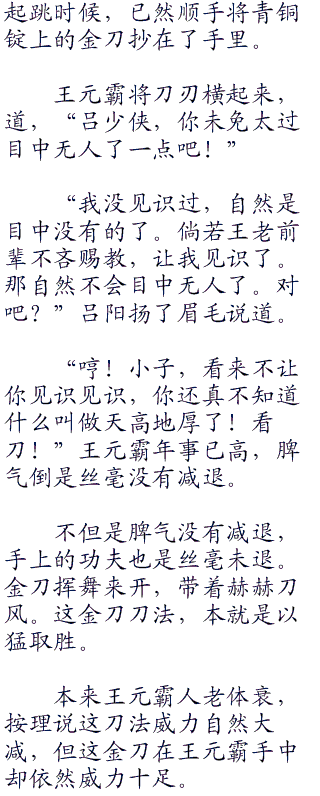 起跳时候，已然顺手将青铜
锭上的金刀抄在了手里。
王元霸将刀刃横起来，
道，“吕少侠，你未免太过
目中无人了一点吧！”
“我没见识过，自然是
目中没有的了。倘若王老前
辈不吝赐教，让我见识了。
那自然不会目中无人了。对
吧？”吕阳扬了眉毛说道。
“哼！小子，看来不让
你见识见识，你还真不知道
什么叫做天高地厚了！看
刀！”王元霸年事已高，脾
气倒是丝毫没有减退。
不但是脾气没有减退，
手上的功夫也是丝毫未退。
金刀挥舞来开，带着赫赫刀
风。这金刀刀法，本就是以
猛取胜。
本来王元霸人老体衰，
按理说这刀法威力自然大
减，但这金刀在王元霸手中
却依然威力十足。